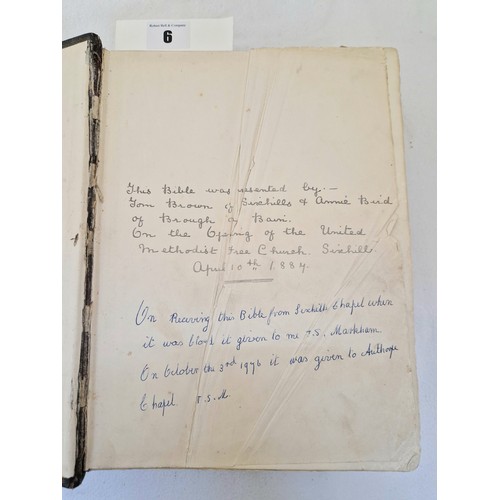 Robert Bell & Company
6
This Bible was esented by:-
Tom Brown of Sixhills & Annie Bird
of Brough o Bain.
On the Opeing of the United
Methodist Free Church Sixhill
April 10th 1884.
On Reaving this Bible from Sixhills Chapel when
it was Closd it given to me T.S. Markham
On October the 3rd 1976 it was given to Authorpe
Chapel T.S.M.